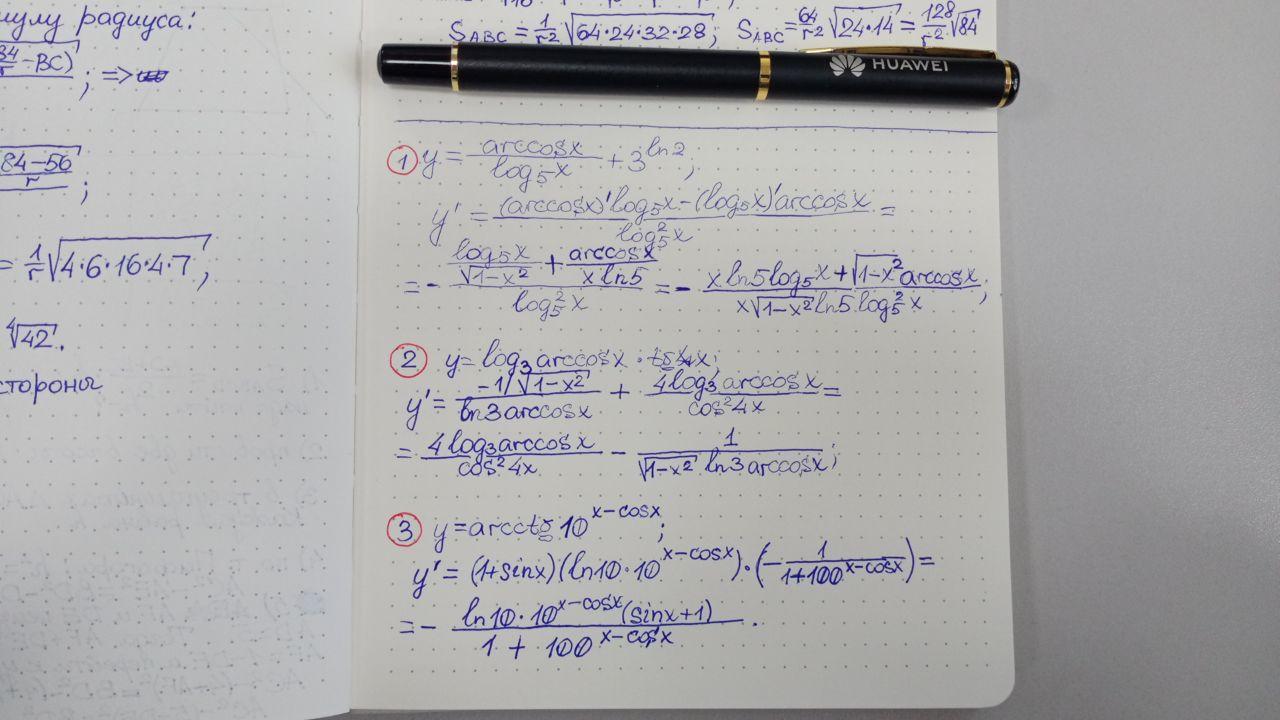 мулу радиуса:
84/r - BC) ; =>
84-56/r ;
= 1/r √(4·6·16·4·7);
⁴√42.
стороны
S_ABC = 1/r² √(64·24·32·28); S_ABC = 64/r² √(24·14) = 128/r² √84
HUAWEI
① y = arccosx/log₅x + 3^(ln2);
y' = ((arccosx)'log₅x - (log₅x)'arccosx)/log₅²x =
= - (log₅x/√(1-x²) + arccosx/(x ln5))/log₅²x = - (x ln5 log₅x + √(1-x²) arccosx)/(x√(1-x²) ln5 log₅²x);
② y = log₃arccosx · 4x;
y' = (-1/√(1-x²))/(ln3 arccosx) + 4log₃arccosx/cos²4x =
= 4log₃arccosx/cos²4x - 1/(√(1-x²) ln3 arccosx);
③ y = arcctg 10^(x-cosx);
y' = (1+sinx)(ln10·10^(x-cosx))·(-1/(1+100^(x-cosx))) =
= - ln10·10^(x-cosx)(sinx+1)/(1+100^(x-cosx)).